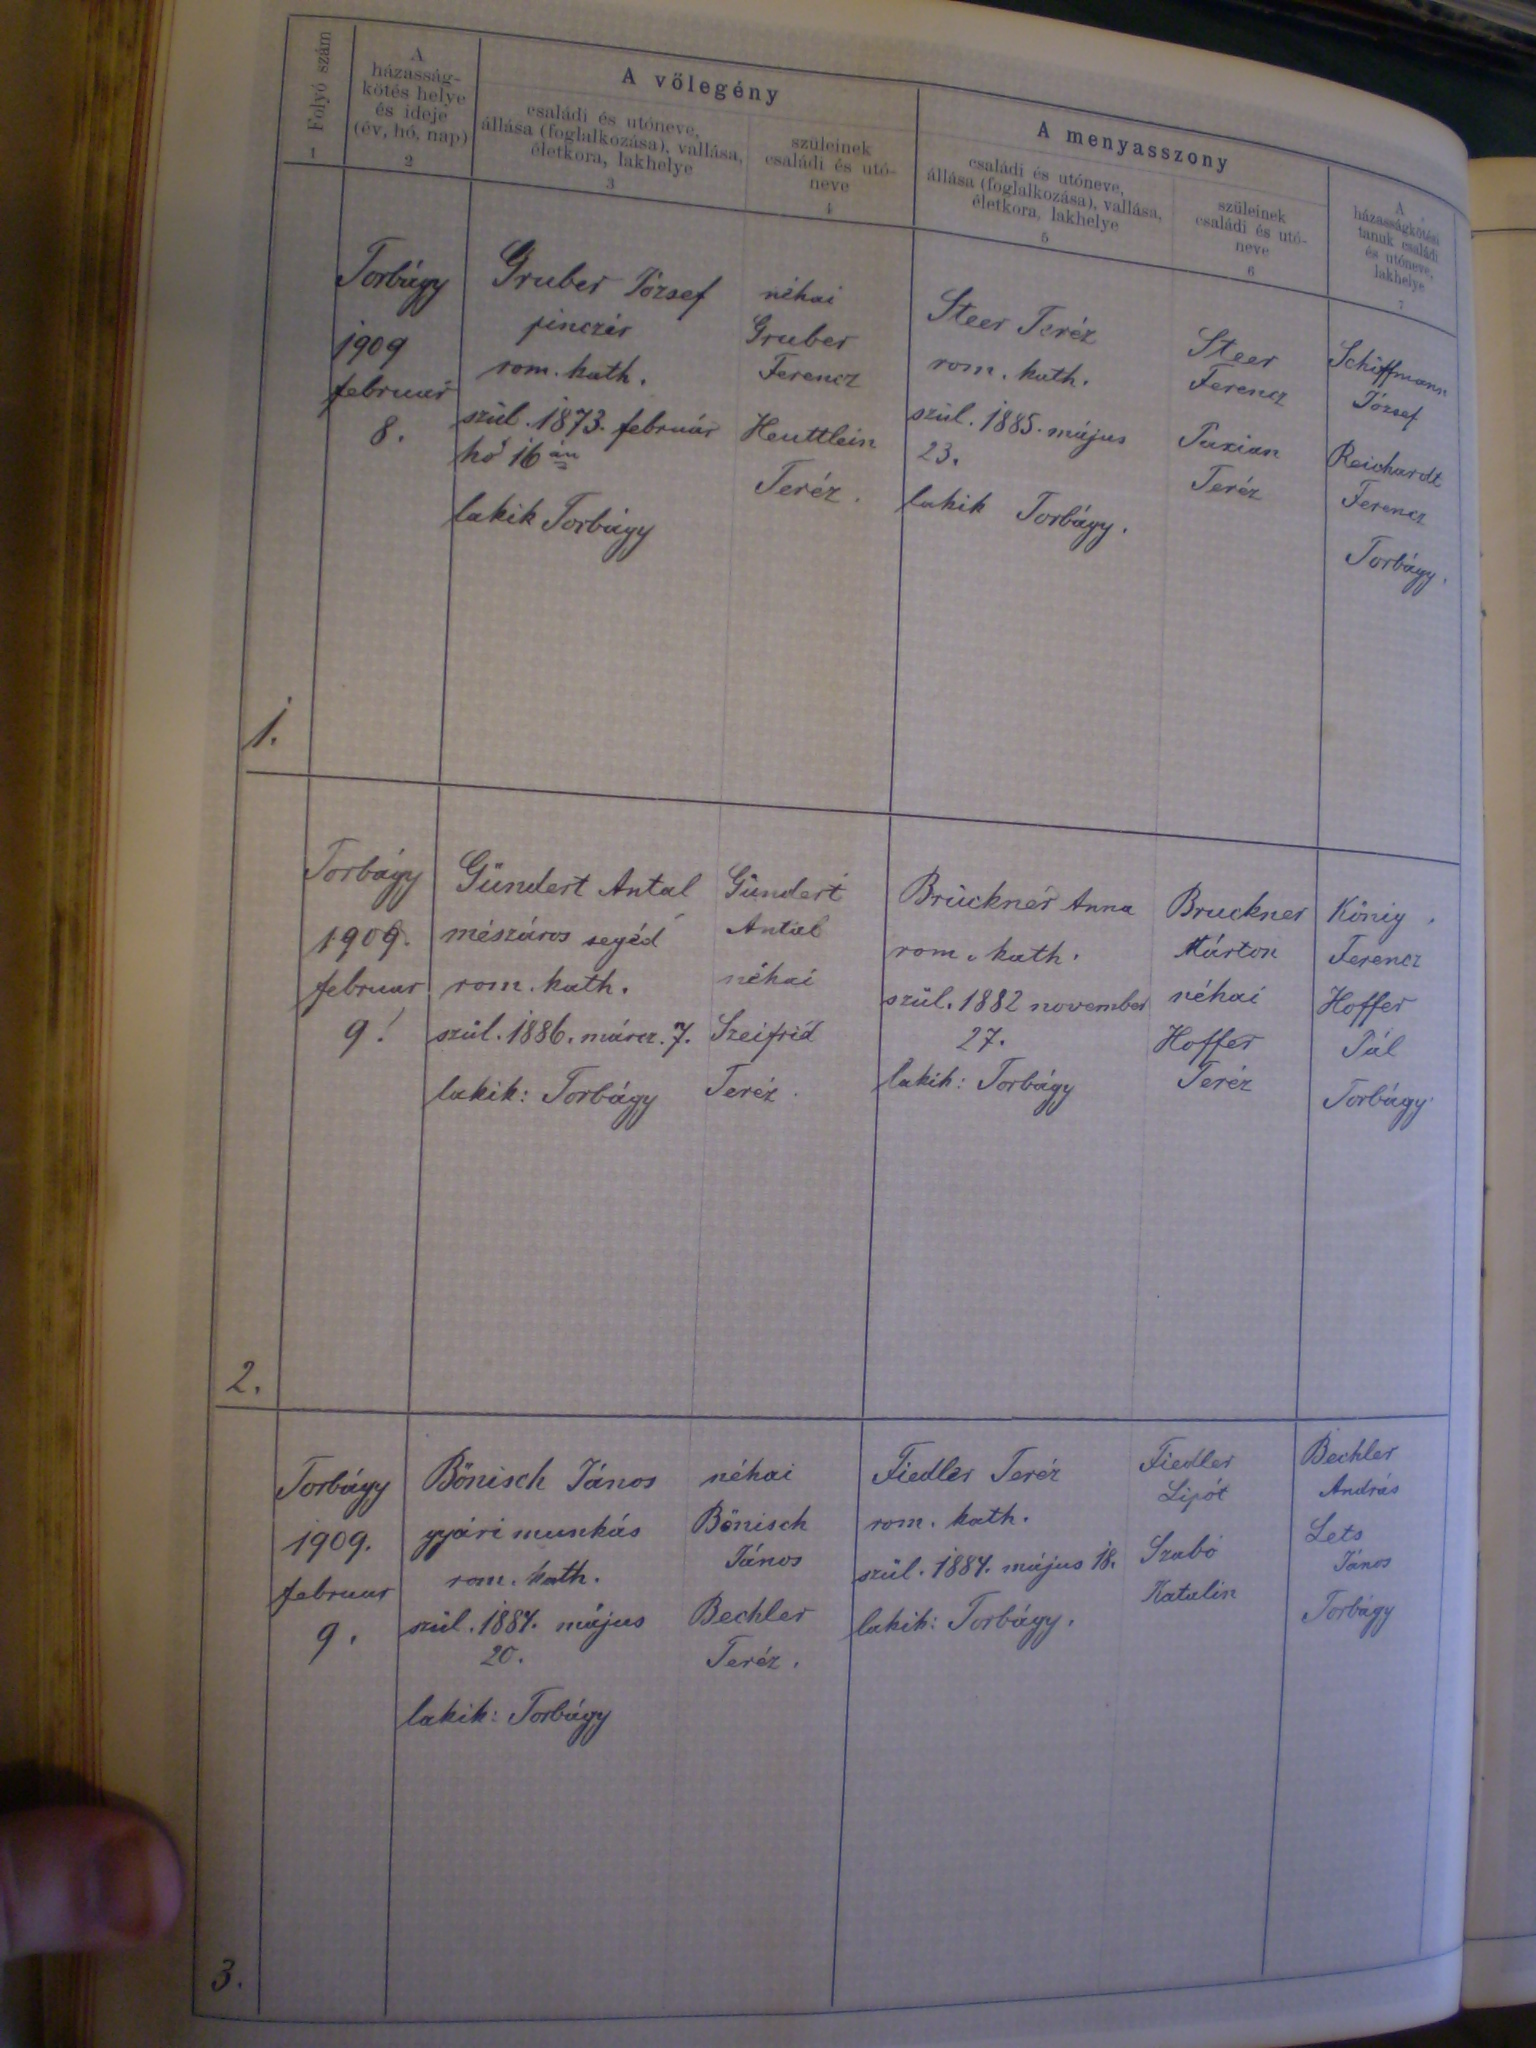 Folyó szám
1
A
házasság-
kötés helye
és ideje
(év, hó, nap)
2
A vőlegény
családi és utóneve,
állása (foglalkozása), vallása,
életkora, lakhelye
3
szüleinek
családi és utó-
neve
4
A menyasszony
családi és utóneve,
állása (foglalkozása), vallása,
életkora, lakhelye
5
szüleinek
családi és utó-
neve
6
A
házasságkötési
tanuk családi
és utóneve,
lakhelye
7
1.
Torbágy
1909
február
8.
Gruber József
pinczér
rom. kath.
szül. 1873. február
hó 16 án
lakik Torbágy
néhai
Gruber
Ferencz
Heuttlein
Teréz.
Steer Teréz
rom. kath.
szül. 1885. május
23.
lakik Torbágy.
Steer
Ferencz
Taxian
Teréz
Schiffmann
József
Reichardt
Ferencz
Torbágy.
2.
Torbágy
1909.
februar
9.
Gündert Antal
mészáros segéd
rom. kath.
szül. 1886. márcz. 7.
lakik: Torbágy
Gündert
Antal
néhai
Szeifrid
Teréz.
Bruckner Anna
rom. kath.
szül. 1882 november
27.
lakik: Torbágy
Bruckner
Márton
néhai
Hoffer
Teréz
König
Ferencz
Hoffer
Pál
Torbágy.
3.
Torbágy
1909.
februar
9.
Bönisch János
gyári munkás
rom. kath.
szül. 1884. május
20.
lakik: Torbágy
néhai
Bönisch
János
Bechler
Teréz.
Fiedler Teréz
rom. kath.
szül. 1884. május 18.
lakik: Torbágy.
Fiedler
Lipót
Szabó
Katalin
Bechler
András
Lets
János
Torbágy